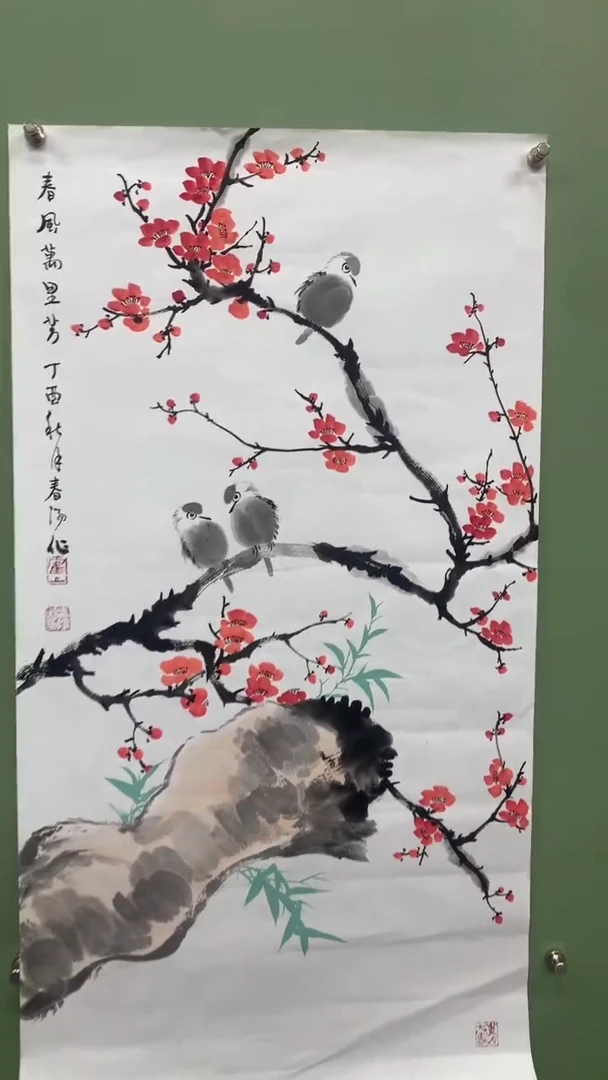 春風萬里芳 丁酉秋月春海作